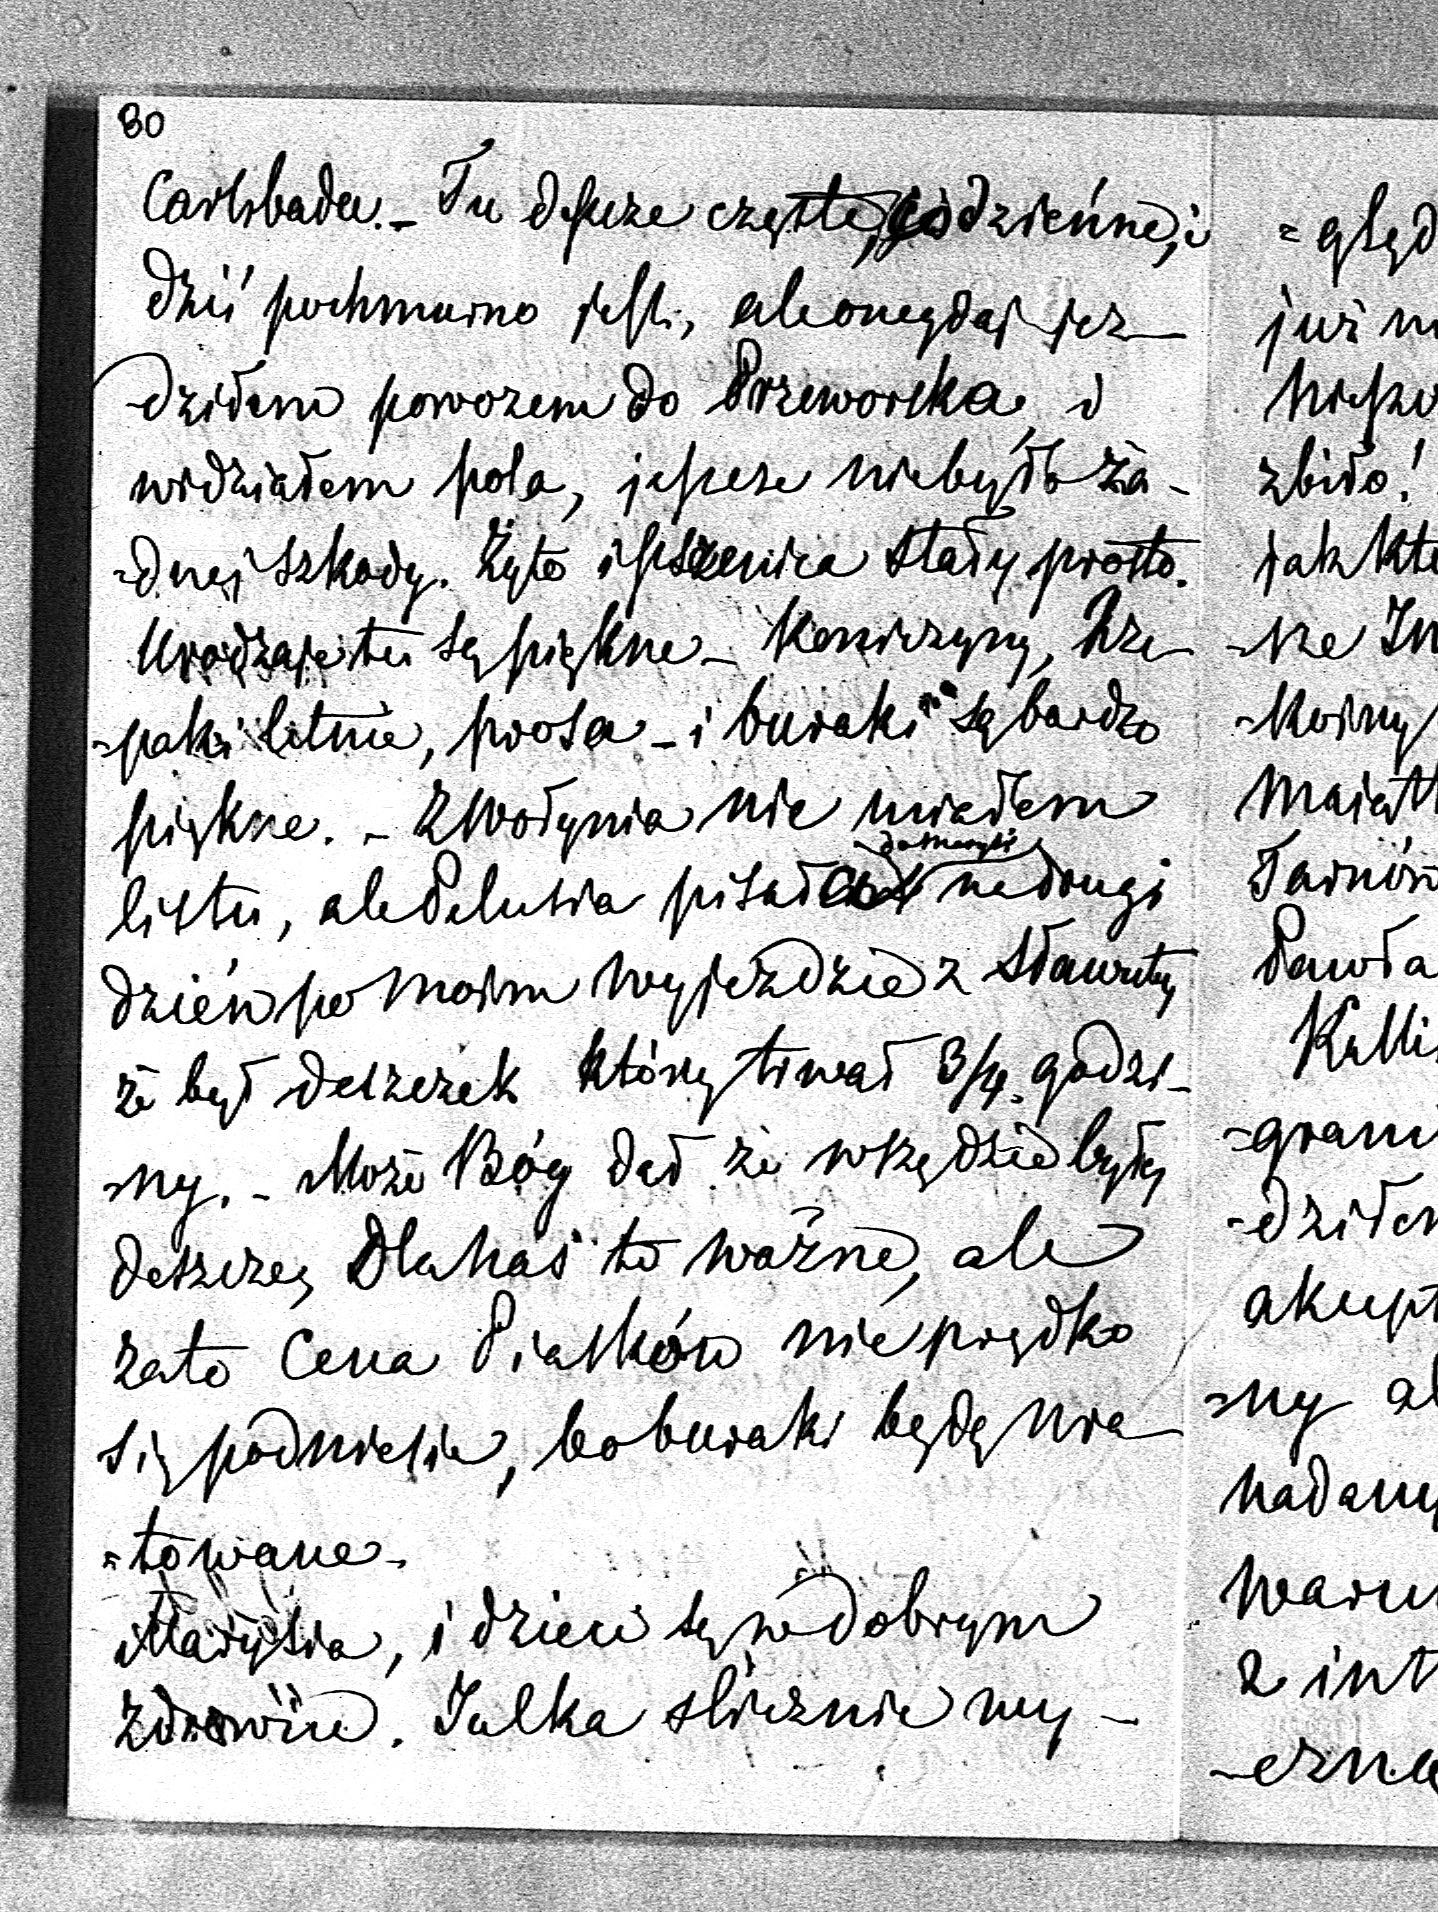 80
Carlsbadu. - Tu deszcze częste, codzienne, i
dziś pochmurno jest, ale onegdaj jez-
dziłem powozem do Przeworska, i
widziałem pola, jeszcze niebyło ża-
-dnej szkody. Żyto i pszenica stały prosto.
Urodzaje tu są piękne - Koniczyny, Rze-
-paki letnie, prosa - i buraki są bardzo
piękne. - Z Wołynia nie miałem
do Maryli
listu, ale Palusia pisała na drugi
dzień po moim wyjeździe z Sławuty
że był deszczek który trwał 3/4. godzi-
-ny. - Może Bóg dał że wszędzie były
deszcze, Dla nas to ważne, ale
zato Cena Piasków nie prędko
się podniesie, bo buraki będą ura-
=towane -
Marysia, i dzieci są w dobrym
zdrowiu. Julka ślicznie wy-
=ględ
już
zbiło!
jak
Pawła
maiąt
Tarnów
akupt
-ny
nadany
z int